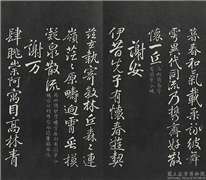 暮春和氣載柔詠彼舞
雩異代同流乃携齊好散
懷一丘
謝安
伊昔先子有懷春遊契
茲言執寄敖林丘森森連
嶺茫茫原疇迥霄垂霧
凝泉散流
謝万
肆眺崇阿寓目高林青